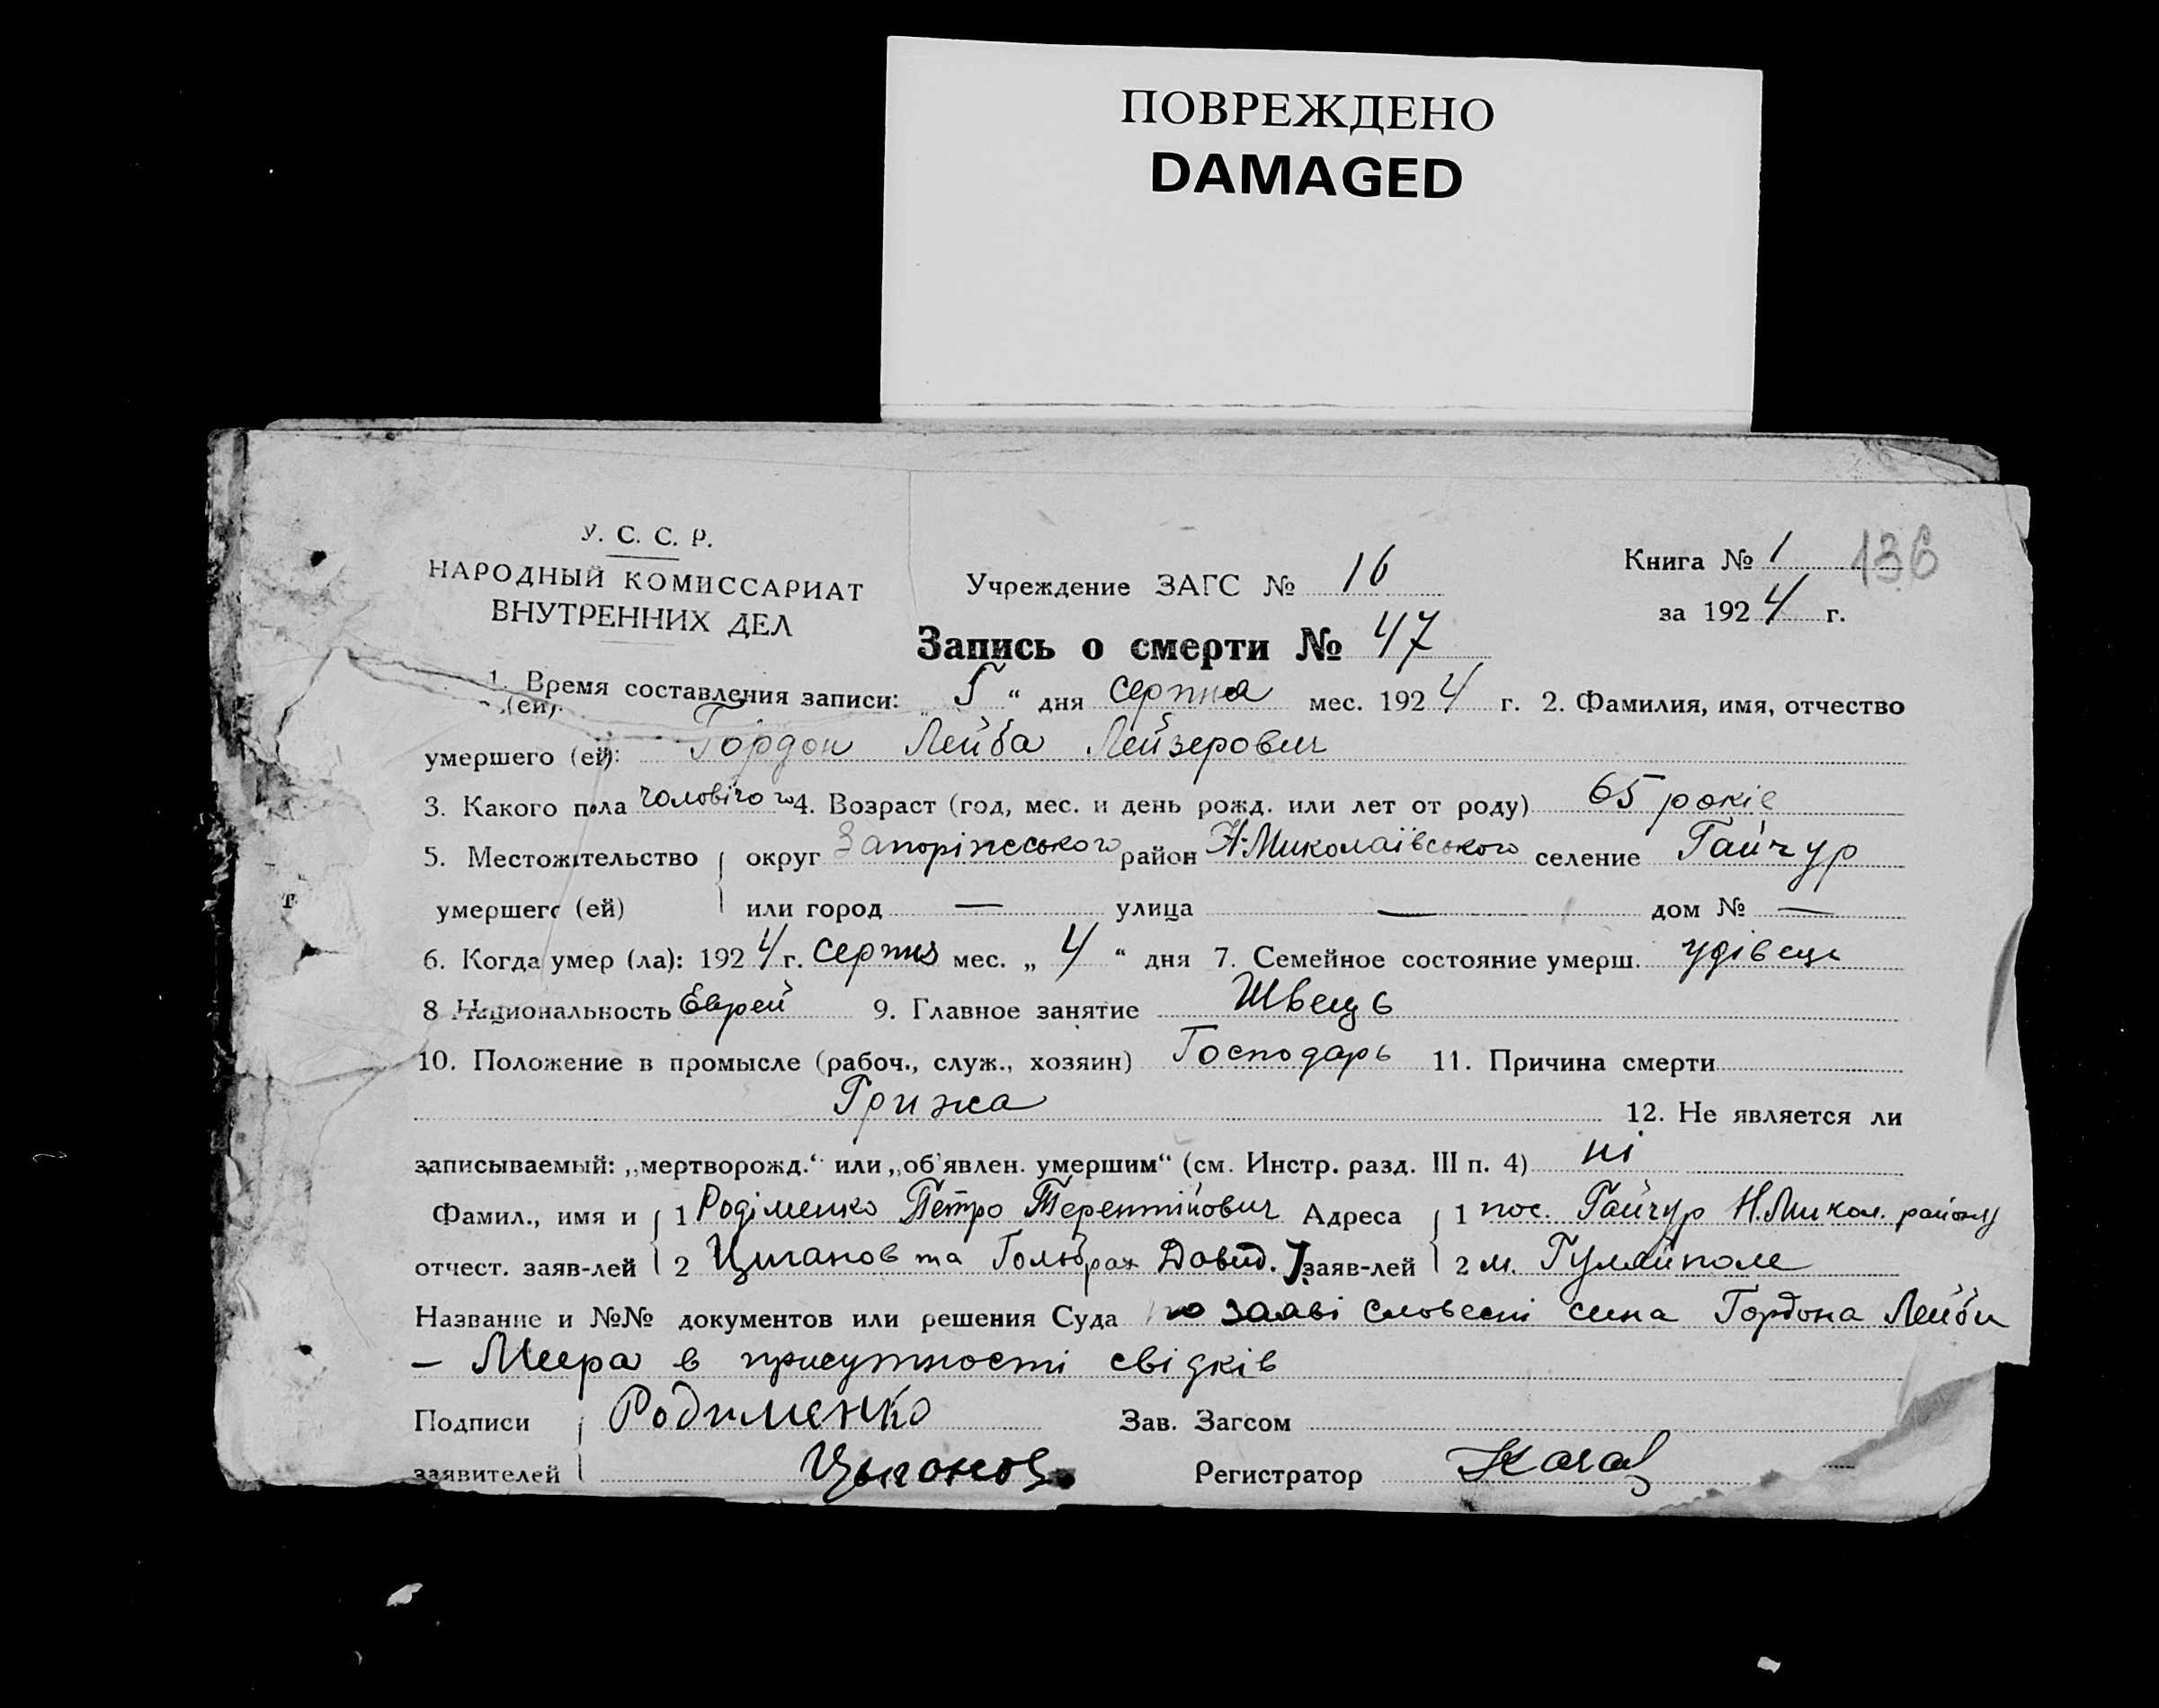 ПОВРЕЖДЕНО
DAMAGED
У. С. С. Р.
НАРОДНЫЙ КОМИССАРИАТ
ВНУТРЕННИХ ДЕЛ
Учреждение ЗАГС № 16
Книга № 1 136
за 1924 г.
Запись о смерти № 47
1. Время составления записи: „5“ дня серпня мес. 1924 г. 2. Фамилия, имя, отчество
(ей).
умершего (ей): Гордон Лейба Лейзерович
3. Какого пола чоловічого 4. Возраст (год, мес. и день рожд. или лет от роду) 65 років
5. Местожительство округ Запоріжського район Н-Миколаївського селение Гайчур
умершего (ей) или город — улица — дом № —
6. Когда умер (ла): 1924 г. серпня мес. „4“ дня 7. Семейное состояние умерш. удівець
8 Национальность Еврей 9. Главное занятие Швець
10. Положение в промысле (рабоч., служ., хозяин) Господарь 11. Причина смерти
Грижа 12. Не является ли
записываемый: „мертворожд.“ или „об'явлен. умершим“ (см. Инстр. разд. III п. 4) ні
Фамил., имя и 1 Родіменко Петро Терентійович Адреса 1 пос. Гайчур Н.Микол. району
отчест. заяв-лей 2 Циганов та Гольбрах Довид. заяв-лей 2 м. Гуляйполе
Название и №№ документов или решения Суда по заяві словесні сина Гордона Лейби
— Меера в присутності свідків
Подписи Родименко Зав. Загсом
заявителей Цыганов Регистратор